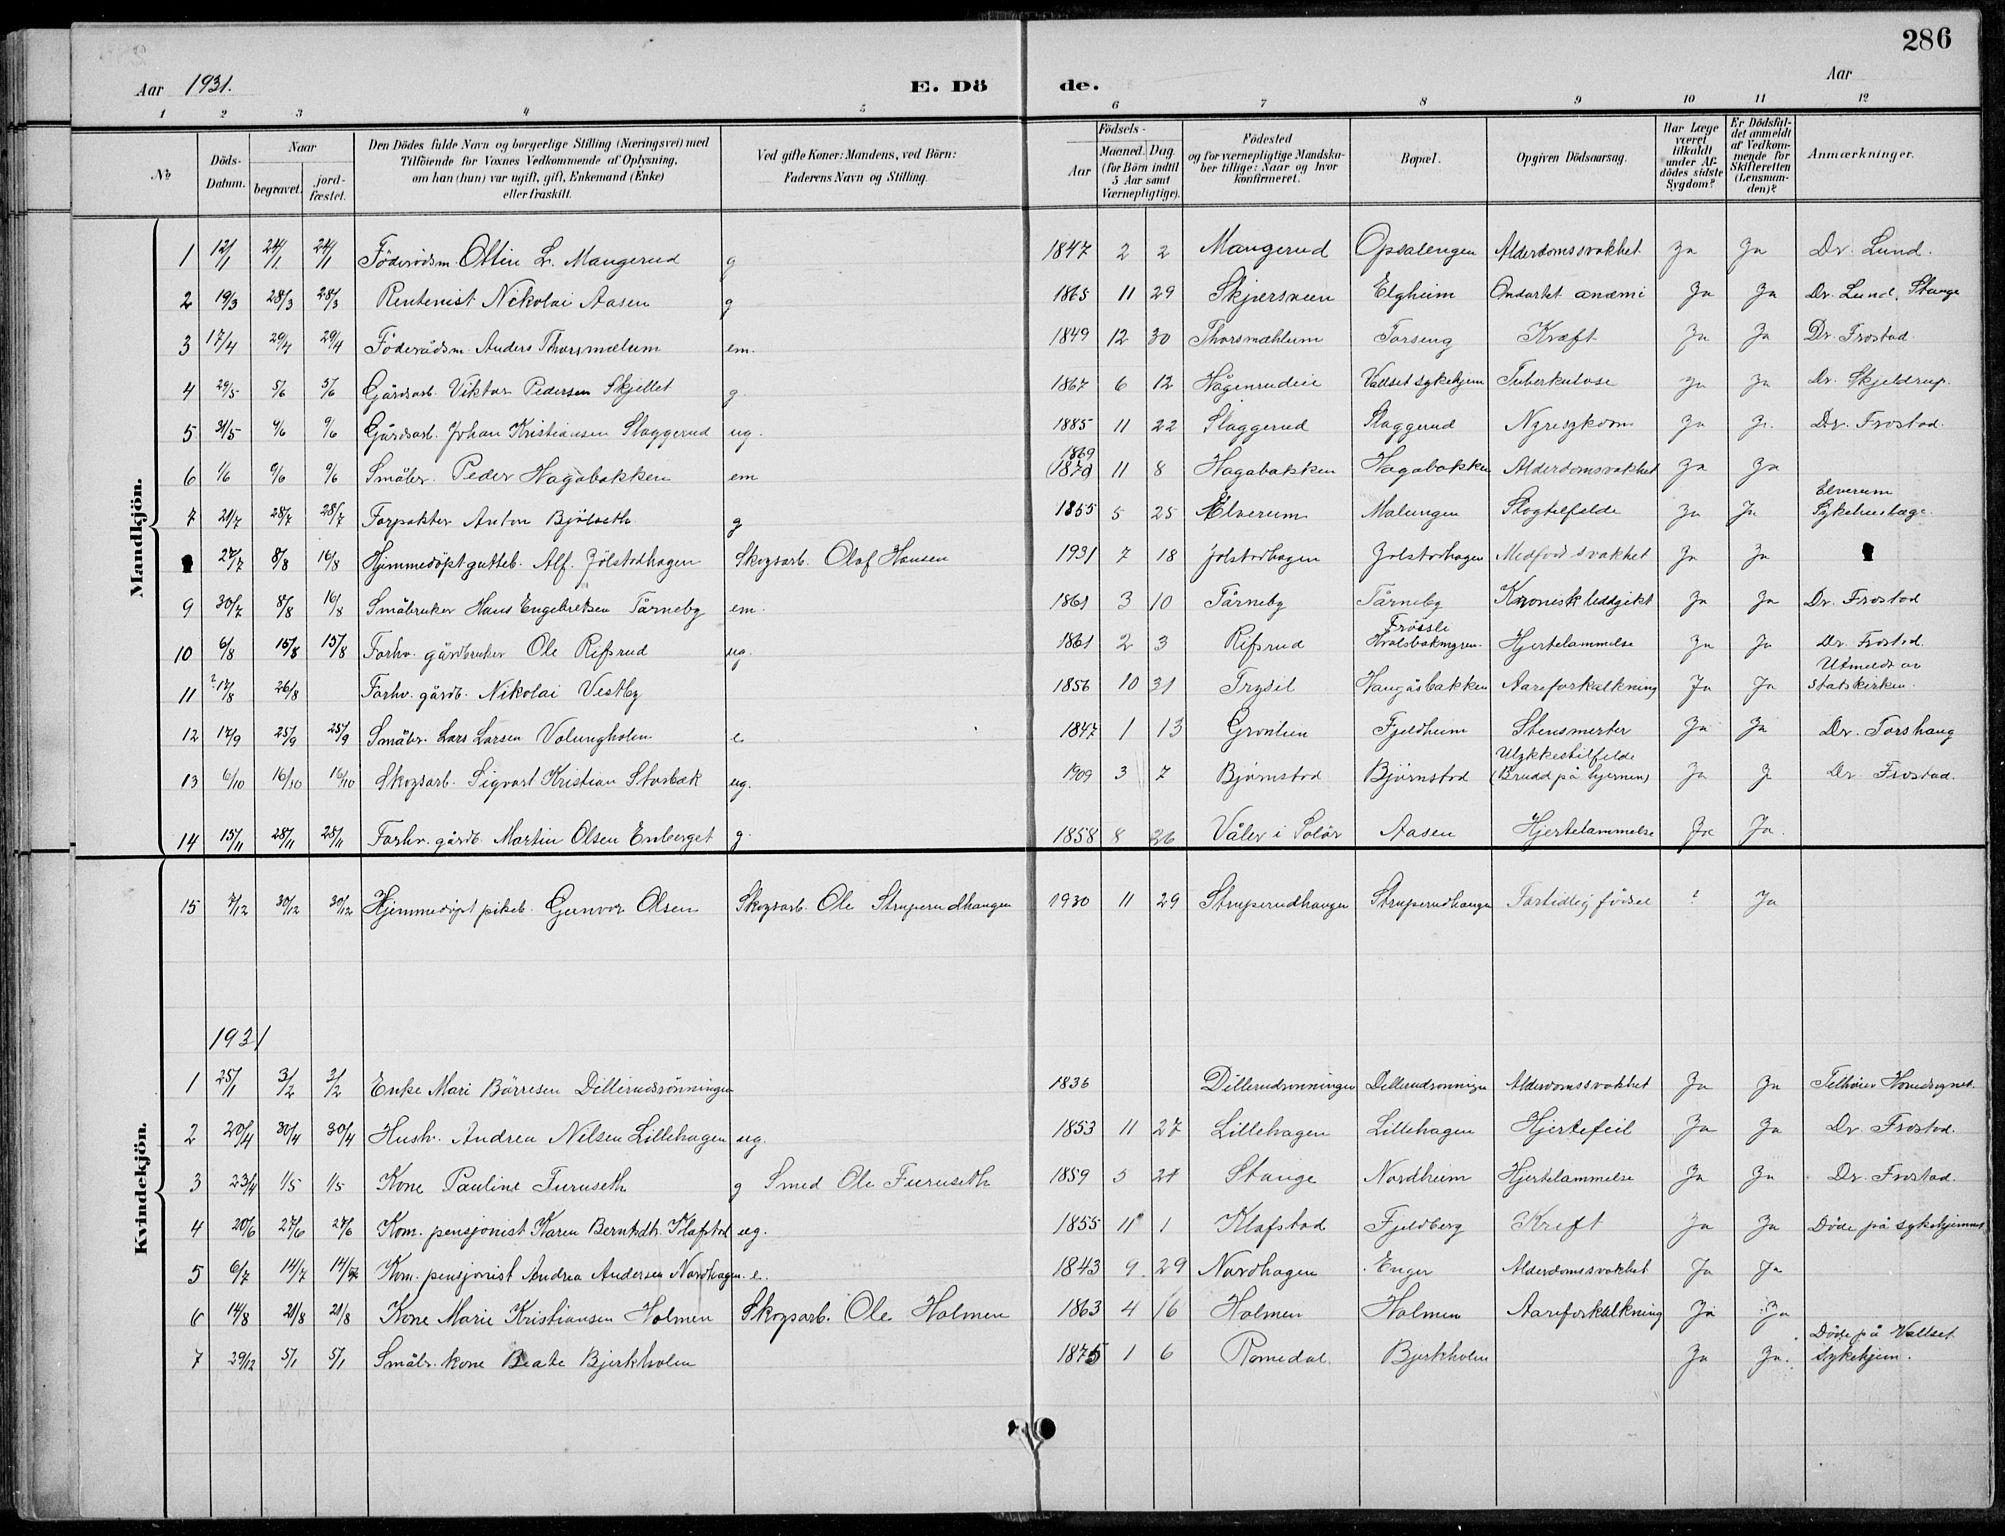 286
Aar 1931. E. Dö de. Aar
1 2 3 4 5 6 7 8 9 10 11 12
No
Döds-Datum.
Naar
begravet.
jord-fæstet.
Den Dödes fulde Navn og borgerlige Stilling (Næringsvei) med
Tilföiende for Voxnes Vedkommende af Oplysning,
om han (hun) var ugift, gift, Enkemand (Enke)
eller fraskilt.
Ved gifte Koner: Mandens, ved Börn:
Faderens Navn og Stilling.
Födsels-
Aar
Maaned. Dag.
(for Börn indtil
5 Aar samt
Værnepligtige).
Födested
og for værnepligtige Mandska-
ber tillige: Naar og hvor
konfirmeret.
Bopæl.
Opgiven Dödsaarsag.
Har Læge
været
tilkaldt
under Af-
dödes sidste
Sygdom?
Er Dödsfal-
det anmeldt
af Vedkom-
mende for
Skifteretten
(Lensman-
den)?
Anmærkninger.
Mandkjön.
1 12/1 24/1 24/1 Föderådsm. Ottin L. Mangerud g 1847 2 2 Mangerud Opsalengen Alderdomssvakhet Ja Ja Dr. Lund.
2 19/3 28/3 28/3 Rentenist Nikolai Aasen g 1865 11 29 Skjærsveen Elgheim Ondartet anæmi Ja Ja Dr. Lund, Stange
3 17/4 29/4 29/4 Föderådsm. Anders Thorsmælum em. 1849 12 30 Thorsmæhlum Torseng Kræft Ja Ja Dr. Frostad.
4 29/5 5/6 5/6 Gårdsarb. Viktor Pedersen Skjellet g. 1867 6 12 Hågenrudeie Vallset sykehjem Tuberkulose Ja Ja Dr. Skjeldrup.
5 31/5 9/6 9/6 Gårdsarb. Johan Kristiansen Slaggerud ug. 1885 11 22 Slaggerud Slaggerud Nyresykdom Ja Ja Dr. Frostad.
6 1/6 9/6 9/6 Småbr. Peder Hagabakken em 1869 (1870) 11 8 Hagabakken Hagabakken Alderdomsvakhet Ja Ja
7 21/7 28/7 28/7 Forpakter Anton Bjölseth g 1855 5 25 Elverum Malungen Slagtilfelde Ja Ja Elverum Sykehuslæge.
27/7 8/8 16/8 Hjemmedöpt gutteb. Alf. Jölstadhagen Skogsarb. Olaf Hansen 1931 7 18 Jölstadhagen Jölstadhagen Medfödt svakhet Ja Ja
9 30/7 8/8 16/8 Småbruker Hans Engebretsen Tårneby em. 1861 3 10 Tårneby Tårneby Kronisk leddgikt Ja Ja Dr. Frostad
10 6/8 15/8 15/8 Forhv. gårdbruker Ole Rifsrud ug. 1861 2 3 Rifsrud Frössle Hjertelammelse Ja Ja Dr. Frostad.
11 ?17/8 26/8 Forhv. gårdb. Nikolai Vestby 1856 10 31 Trysil Haugåsbakken Aareforkalkning Ja Ja Utmeldt av statskirken.
12 17/9 25/9 25/9 Småbr. Lars Larsen Volungholen e. 1847 1 13 Grönlien Fjeldheim Stensmerter Ja Ja Dr. Torshaug
13 6/10 16/10 16/10 Skogsarb. Sigvart Kristian Storbæk ug. 1909 3 7 Björnstad Björnstad Ulykkestilfelde (Brudd på hjernen) Ja J Dr. Frostad.
14 15/11 28/11 28/11 Forhv. gårdb. Martin Olsen Enberget g. 1858 8 26 Våler i Solör Aasen Hjertelammelse Ja Ja.
15 7/12 30/12 30/12 Hjemmedöpt pikeb. Gunvor Olsen Skogsarb. Ole Struperudhaugen 1930 11 29 Struperudhaugen Struperudhaugen Fortidlig födsel ? Ja
1931
Kvindekjön.
1 25/1 3/2 3/2 Enke Mari Börresen Dillerudrönningen 1836 Dillerudrönningen Dillerudrönningen Alderdomssvakhet Ja Ja Tilhörer Hovedsognet.
2 20/4 30/4 30/4 Hush. Andrea Nilsen Lillehagen ug. 1853 11 27 Lillehagen Lillehagen Hjertefeil Ja Ja Dr. Frostad.
3 23/4 1/5 1/5 Kone Pauline Furuseth g Smed Ole Furuseth 1859 5 21 Stange Nordheim Hjertelammelse Ja Ja Dr. Frostad.
4 20/6 27/6 27/6 Kom. pensjonist Karen Berntsdtr. Klafstad ug. 1855 11 1 Klafstad Fjeldberg Kreft Ja Ja Döde på sykehjemmet
5 6/7 14/7 14/7 Kom. pensjonist Andrea Andersen Nordhagen. e. 1843 9 29 Nordhagen Enger Alderdomssvakhet Ja Ja
6 14/8 21/8 21/8 Kone Marie Kristiansen Holmen Skogsarb. Ole Holmen 1863 4 16 Holmen Holmen Aareforkalkning Ja Ja
7 29/12 5/1 5/1 Småbr. kone Beate Bjerkholen 1875 1 6 Romedal. Bjerkholen Ja Ja. Döde på Vallset sykehjem.